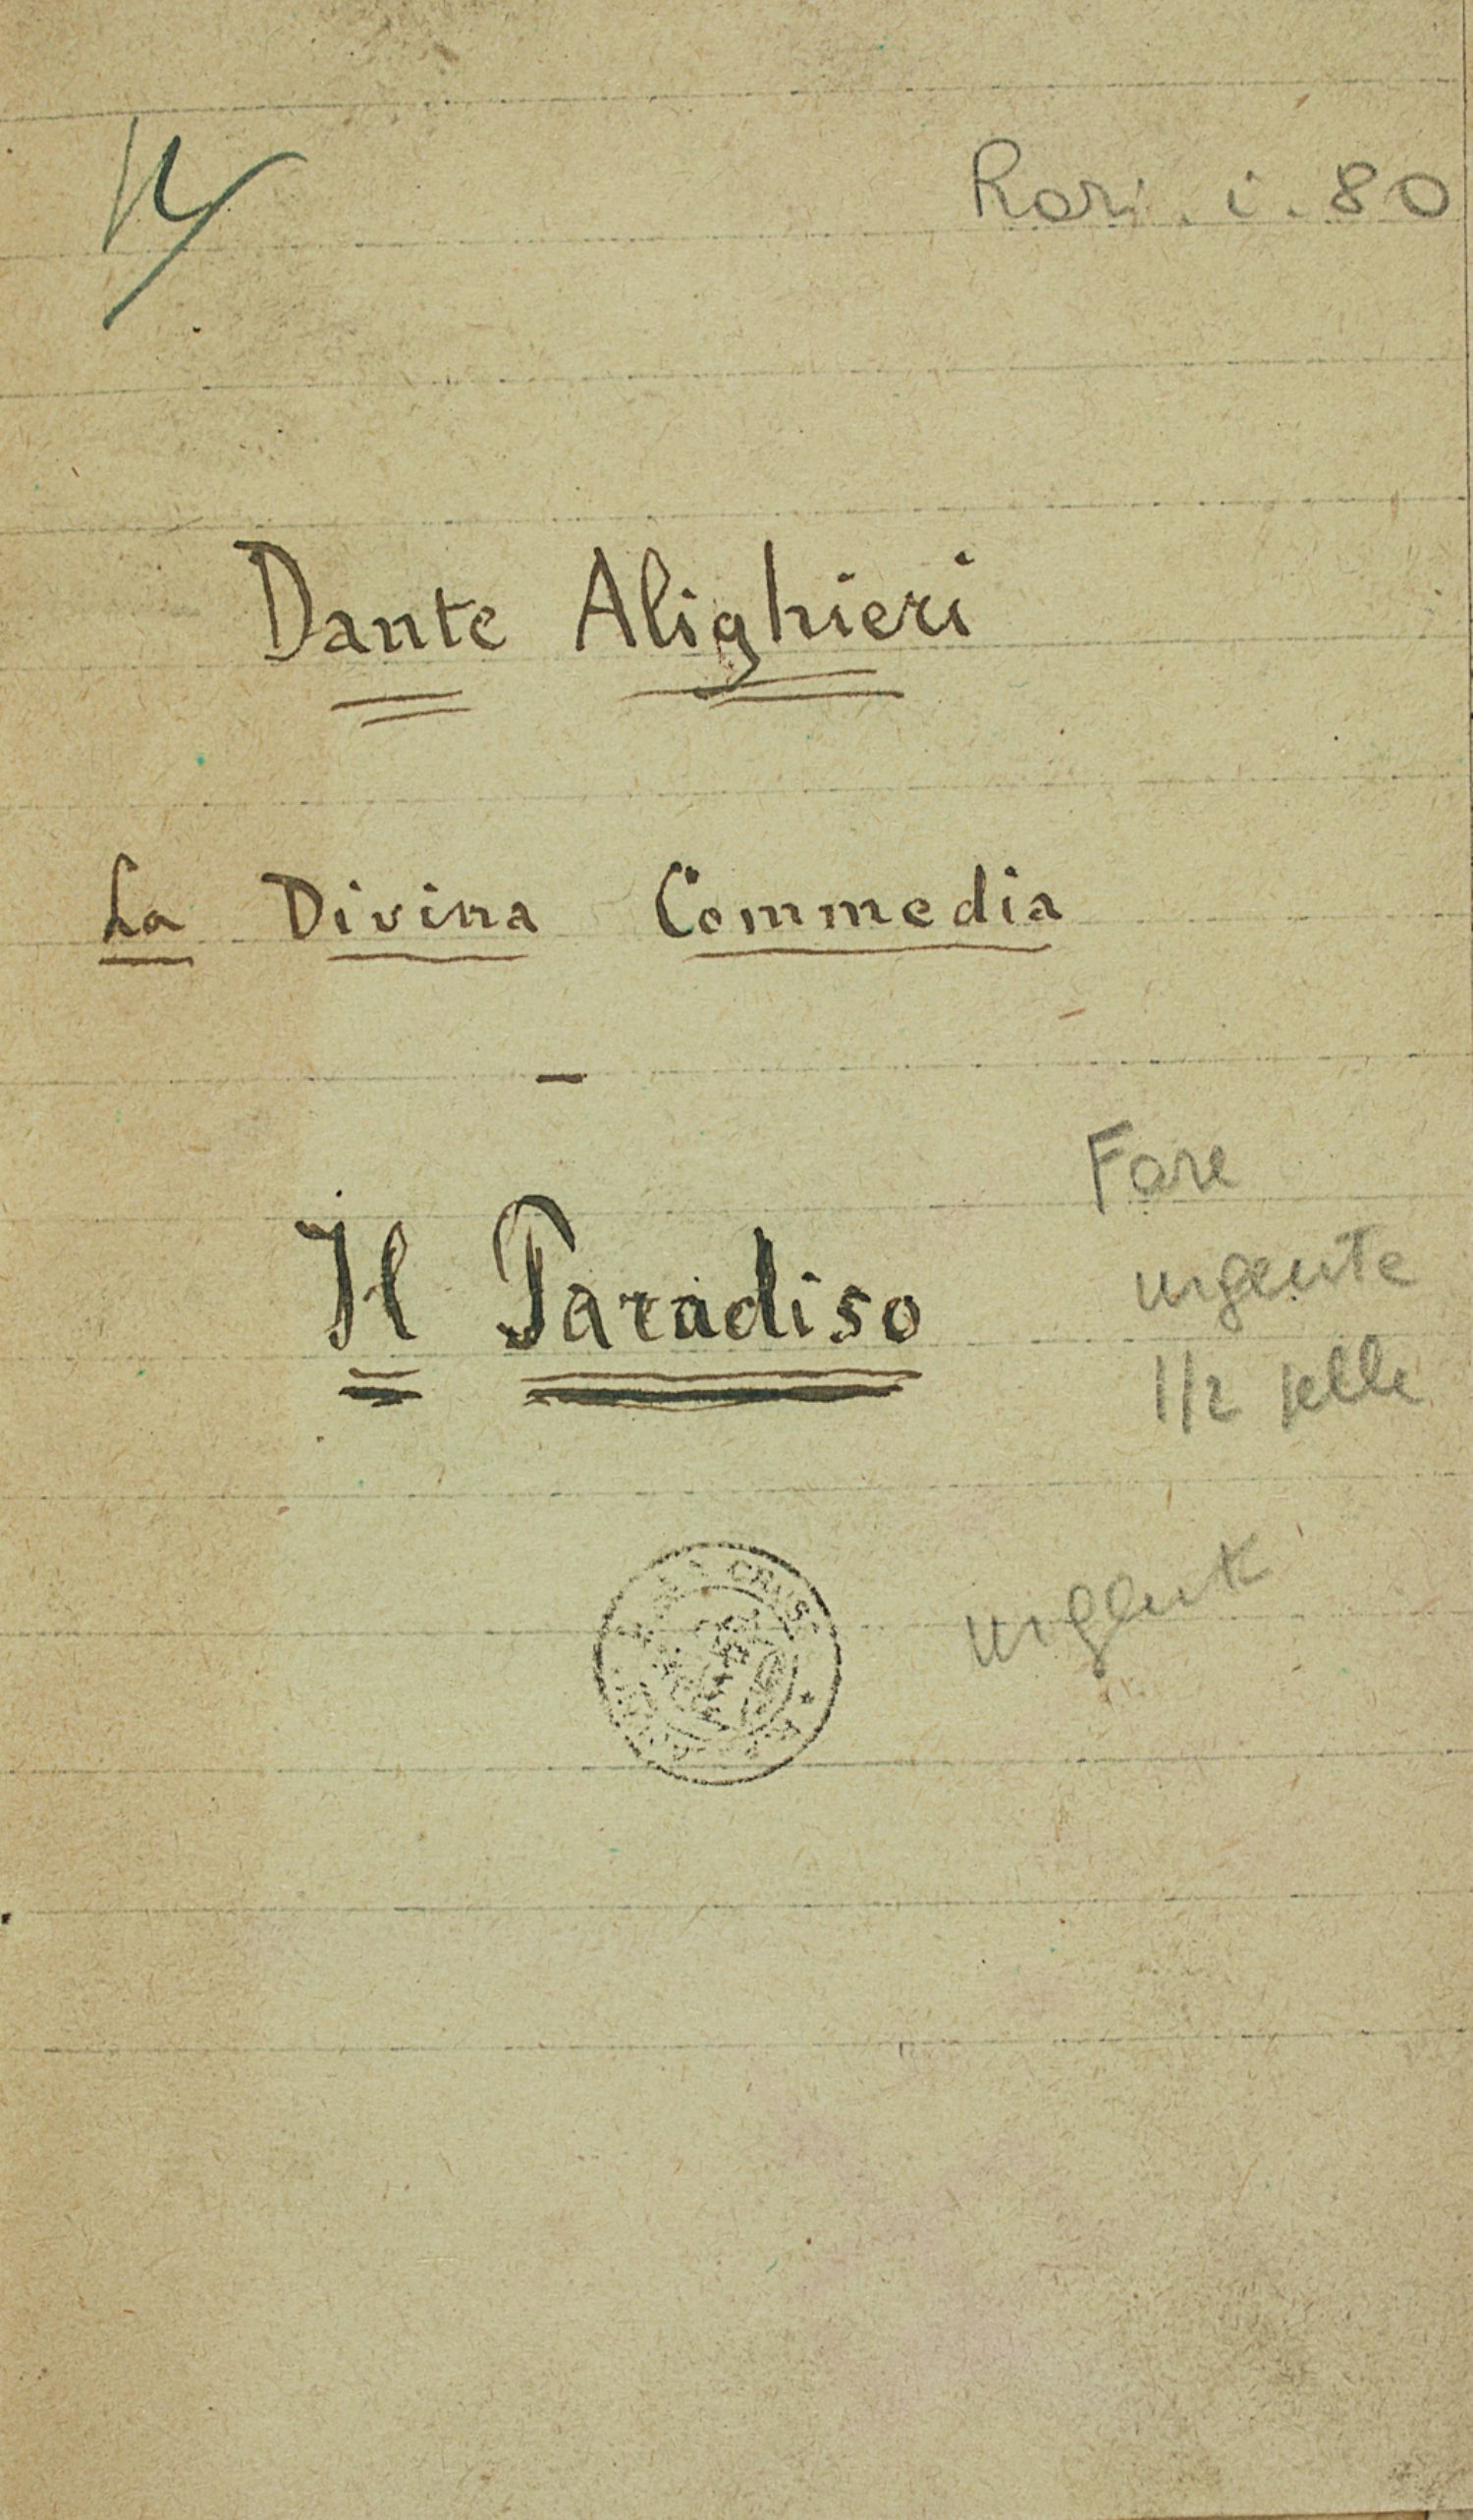 Rari. i. 80
Dante Alighieri
La Divina Commedia
–
Il Paradiso
Fare
urgente
1/2 pelle
urgente